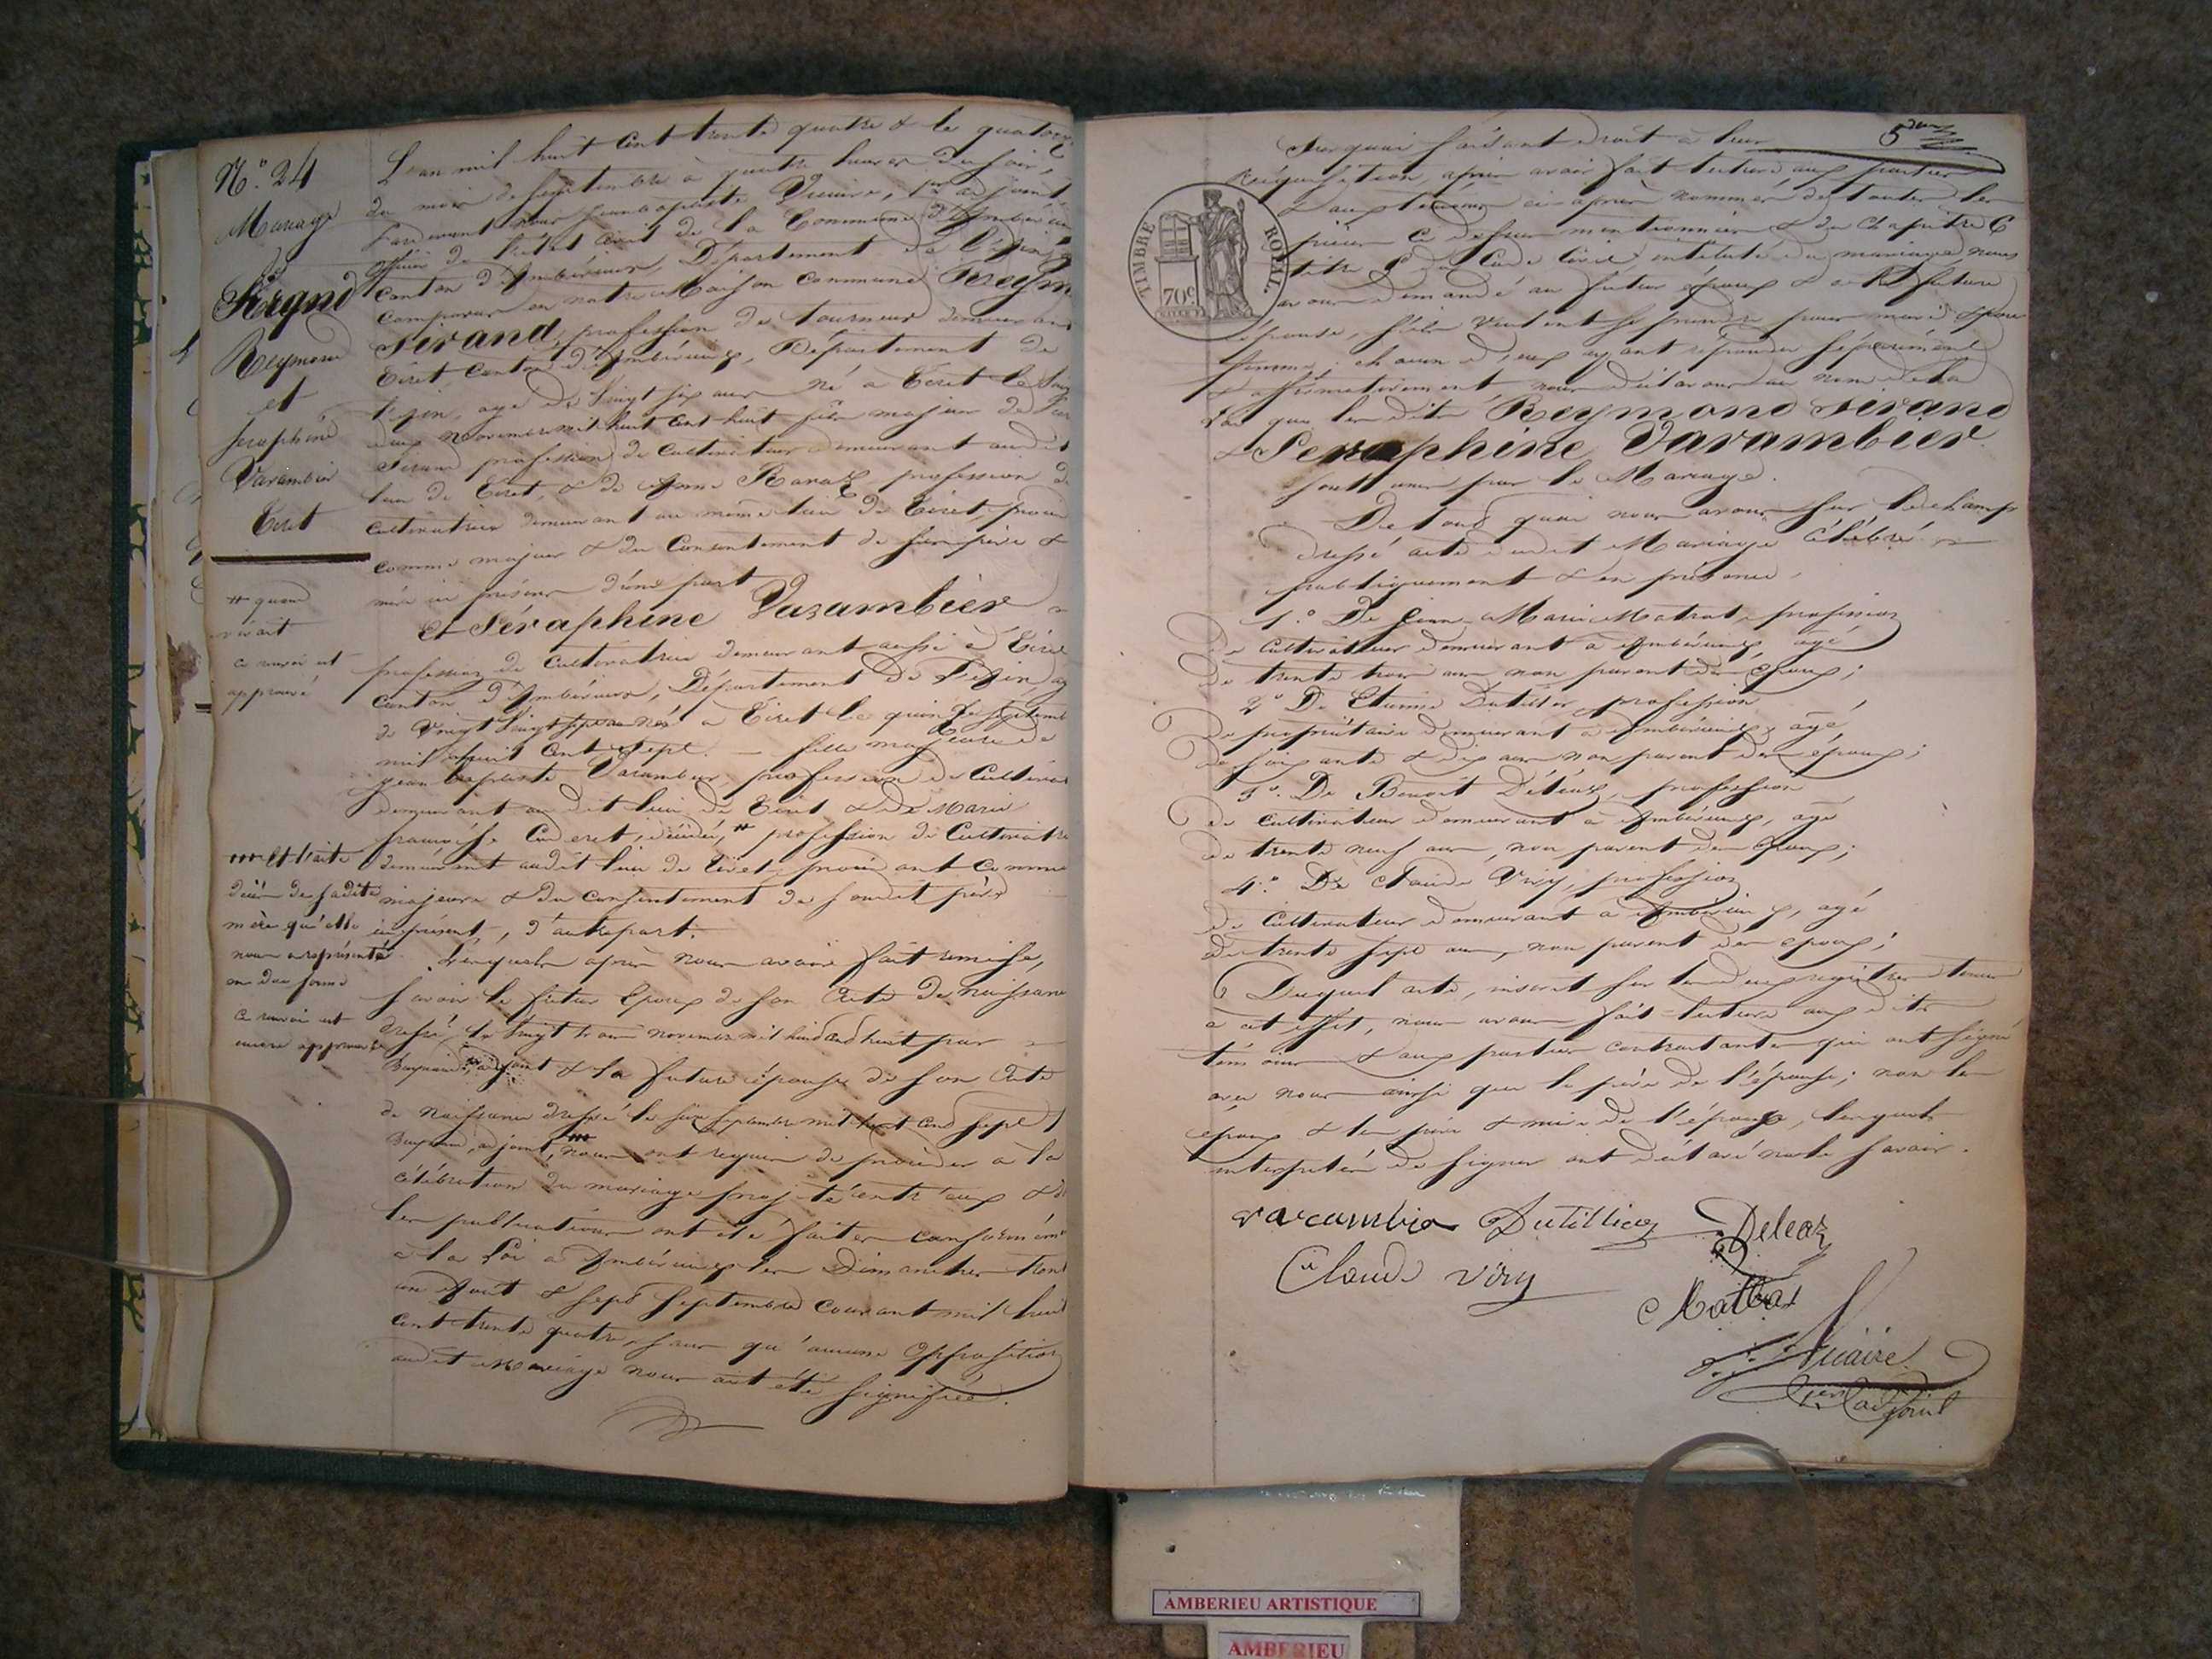 N.° 24
Mariage
Sirand
Reymond
et
Séraphine
Varambier
Tiret
# quand
vivait
ce renvoi est
approuvé
et l'acte
décès de sadite
mère qu'elle
nous a représenté
en due forme
ce renvoi est
encore approuvé
L'an mil huit cent trente quatre & le quatorze
du mois de septembre à quatre heures du soir,
Pardevant nous Jean baptiste Vicaire, 1er adjoint
officier de l'état civil de la Commune d'Ambérieux
canton d'Ambérieux, Département de l'Ain
comparu en notre Maison commune Reym
Sirand, profession de tourneur demeurant
Tiret, canton d'Ambérieux, Département de
l'ain, agé de vingt six ans né à Tiret le vingt
deux novembre mil huit cent huit fils majeur de
Sirand profession de cultivateur demeurant audit
lieu de Tiret, & de profession de
cultivatrice demeurant au même lieu de Tiret,
comme majeur & du Consentement de son père &
mère ici présens d'une part
Et Séraphine Varambier
profession de cultivatrice demeurant aussi à Tiret
canton d'Ambérieux, Département de l'ain, ag
de vingt sept ans née à Tiret le quinze septemb
mil huit cent sept. — fille majeure de
jean baptiste Varambier, profession de cultivat
demeurant au dit lieu de Tiret & de Marie
françoise décédée, # profession de Cultivatri
demeurant audit lieu de Tiret, procédant comme
majeure & du consentement de son dit père
ici présent, d'autre part.
Lesquels après nous avoir fait remise,
savoir le futur époux de son Acte de naissance
dressé le vingt trois novembre mil huit cent huit par
adjoint & la future épouse de son Acte
de naissance dressé le septembre mil huit cent sept
adjoint, nous ont requis de procéder à la
célébration du mariage projeté entr'eux & d
les publications ont été faites conformém
à la Loi à Ambérieux les Dimanches trent
un Août & sept septembre courant mil huit
cent trente quatre, sans qu'aucune opposition
audit Mariage nous ait été signifiée.
5
Sur quoi faisant droit à leur
Réquisition, après avoir fait lecture aux parties
& aux témoins ci-après nommés de toutes les
pièces ci-dessus mentionnées & du Chapitre 6
titre 5 du Code Civil intitulé du mariage nous
avons demandé au futur époux & à la future
épouse, s'ils veulent se prendre pour mari & pour
femme, chacun d'eux ayant répondu séparément
& affirmativement, nous déclarons au nom de la
Loi que lesdits Reymond Sirand
& Seraphine Varambier
sont unis par le Mariage.
De tout quoi nous avons sur le champ
dressé acte dudit Mariage célébré
publiquement & en présence,
1.° De Jean-Marie Matrat, profession
de Cultivateur demeurant à Ambérieux, agé
de trente trois ans non parent des époux;
2.° De Etienne Dutillier, profession
de propriétaire demeurant à Ambérieux, agé
de soixante & dix ans non parent des époux;
3.° De Benoit Deléaz, profession
de cultivateur demeurant à Ambérieux, agé
de trente neuf ans, non parent des époux;
4.° De Claude Viry, profession
de Cultivateur demeurant à Ambérieux, agé
de trente sept ans, non parent des époux;
Duquel acte, inscrit sur les deux registres tenus
à cet effet, nous avons fait lecture auxdits
témoins & aux parties contractantes qui ont signé
avec nous ainsi que le père de l'épouse; non les
époux & les père & mère de l'époux, lesquels
interpellés de signer ont déclaré ne le savoir.
varambier Dutillier Deleaz
Claude viry
Matrat
Vicaire
1er adjoint
TIMBRE ROYAL.
70c.
AMBERIEU ARTISTIQUE
AMBERIEU